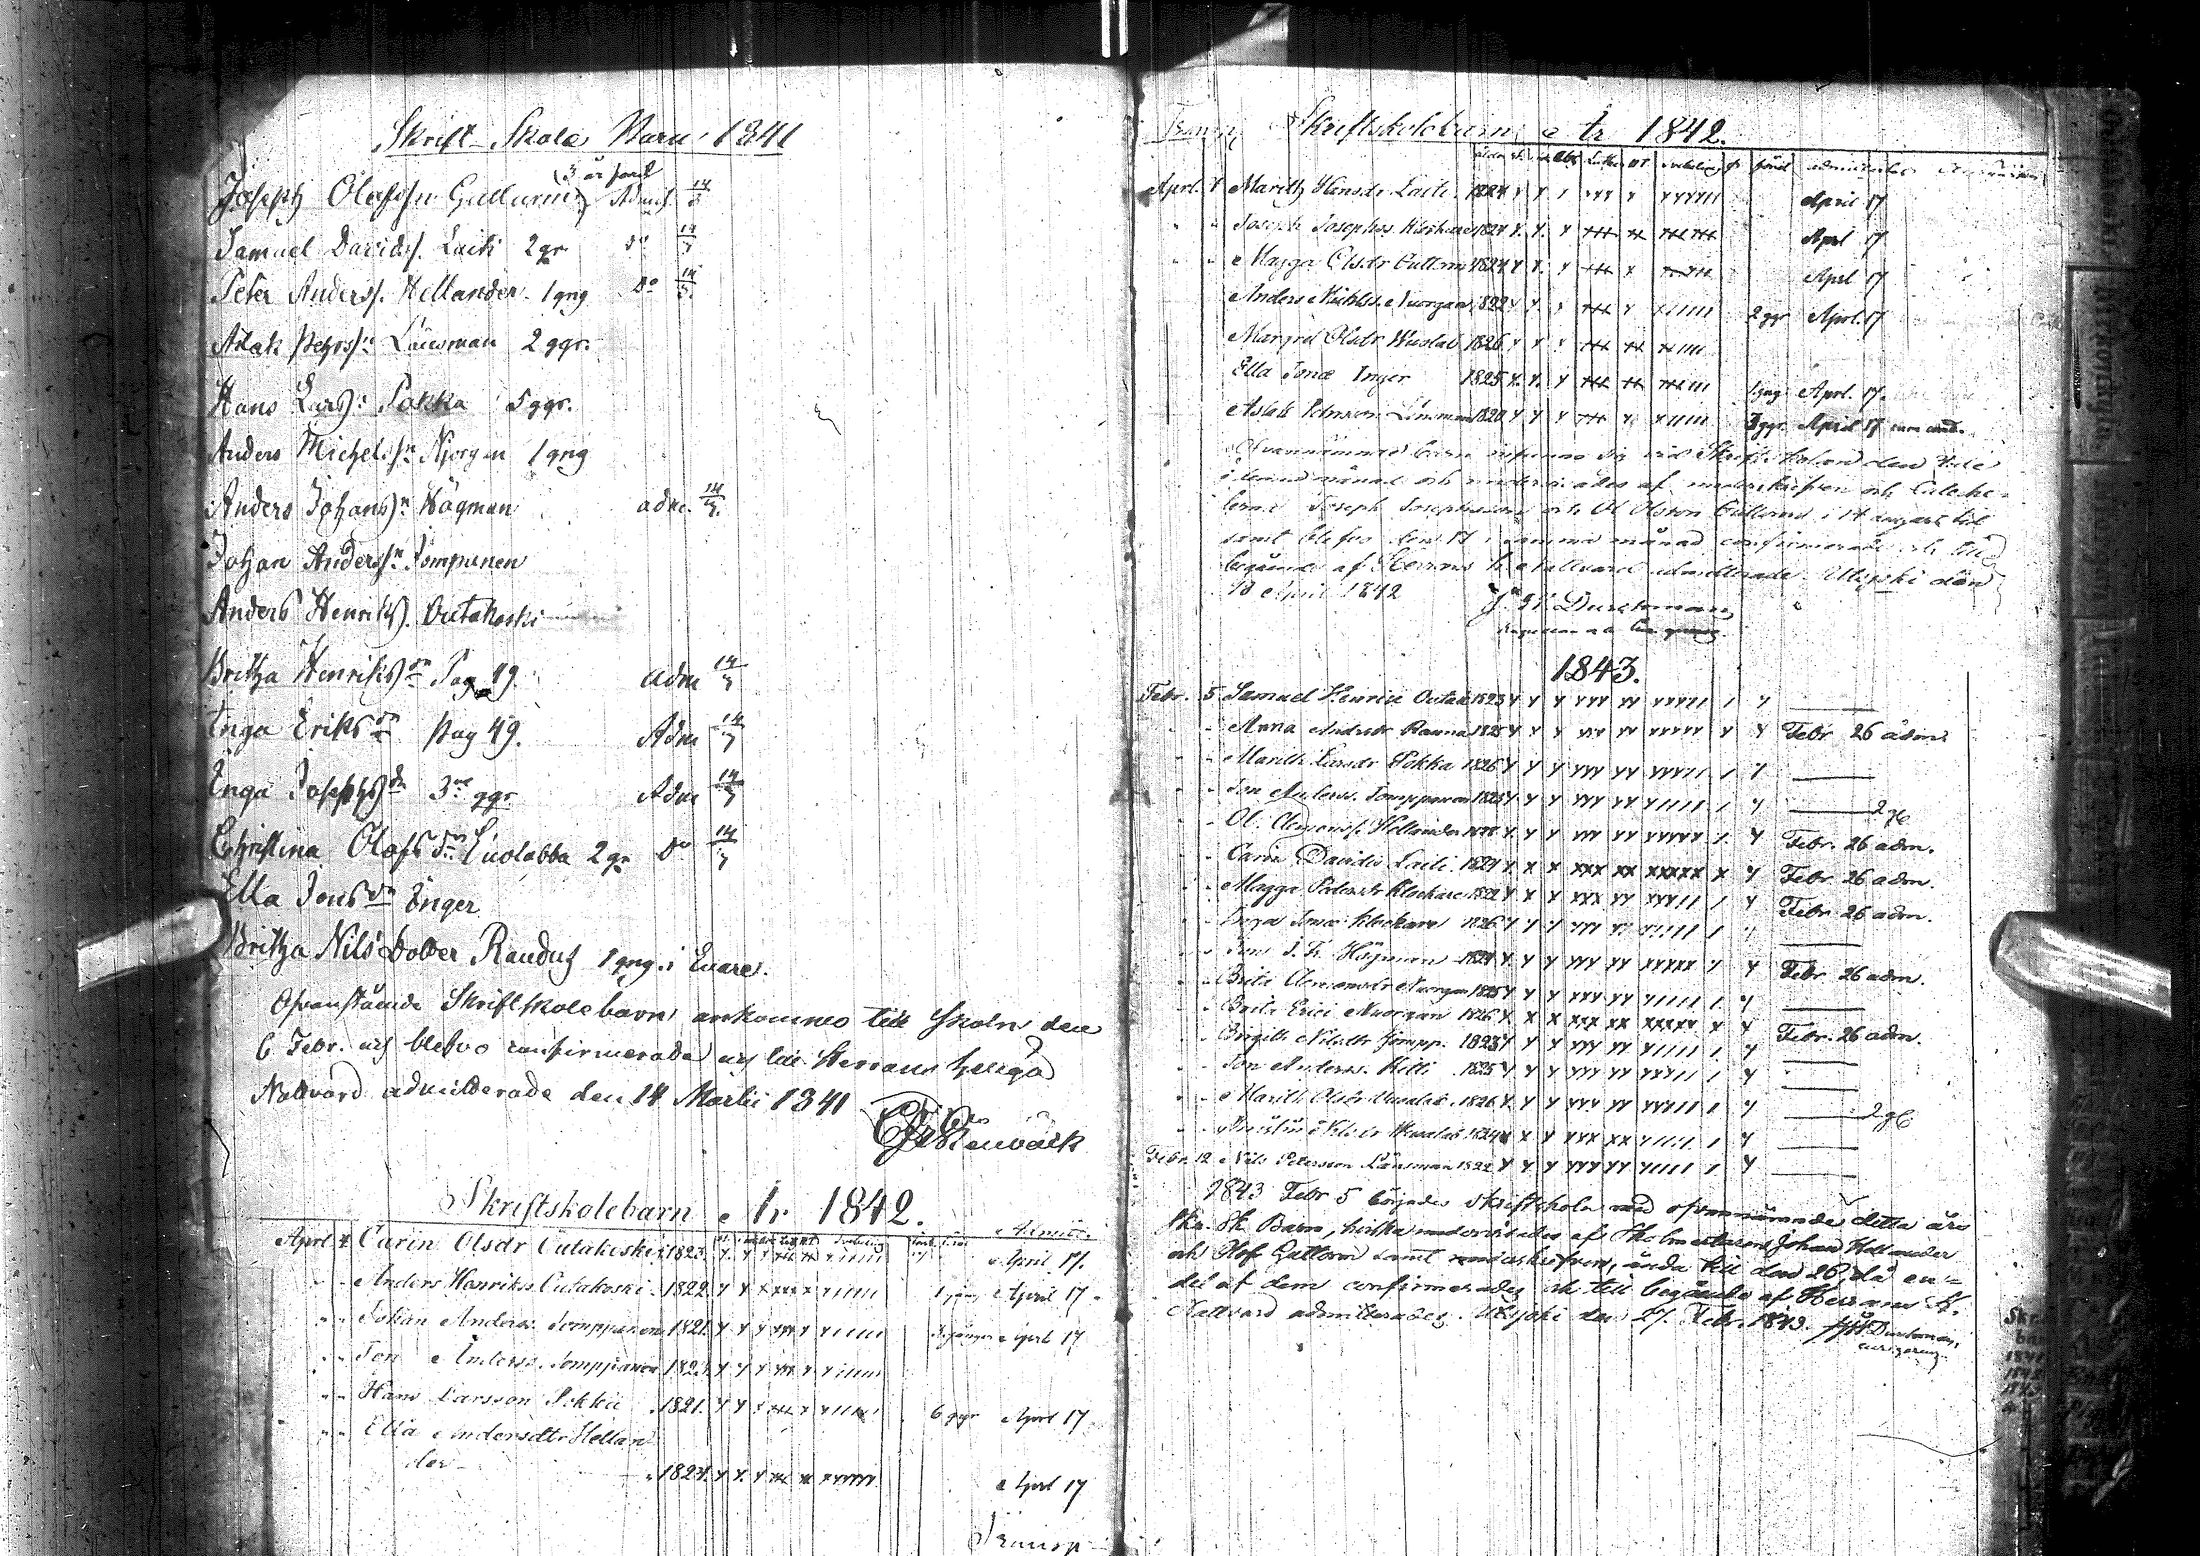 Skrift-Skole Barn 1841
(3 år förut)
Joseph Olofsson Guttorm Adm. 14/3
Samuel Davidss. Laiti 2 gr do 14/3
Peter Anderss. Hellander 1 gng do 14/3
Aslak Pehrss:n Länsman 2 ggr.
Hans Larss: Pokka 5 ggr.
Anders Michelss:n Njorgan 1 gng
Anders Johanss:n Högman adm. 14/3
Johan Anderss:n Jomppanen
Anders Henrikss. Outakoski
Britha Henriksdr Pag 49. adm 14/3
Inga Eriksdr Pag 49. Adm 14/3
Inga Josephsdr 3ne ggr Adm 14/3
Christina Olofsdr Wuolabba 2 gr do 14/3
Ella Jonsdr Inger
Britha Nils Dotter Rauduf 1 gng i Enare.
Ofvanstående Skriftskolebarn ankommo till Skolan den
6 Febr. och blefvo confirmerade och till Herrans heliga
Nattvard admitterade den 14 Martii 1841
Stenbäck
Skriftskolebarn År 1842.
April 4 Carin Olsdr Outakoski 1823. April 17.
" " Anders Henrikss Outakoski 1822 1 gång April 17
" " Johan Anderss. Jomppanen 1821 3 gånger April 17
" " Jon Anderss. Jomppanen 1823
" " Hans Larsson Pokka 1821. 6 ggr April 17.
" " Ella Andersdtr Hellan
der 1824. April 17
Transp
Transp. Skriftskolebarn År 1842.
Aprl. 4 Marith Hansdr Laiti 1824 April 17
" " Joseph Josephss Klockare 1824 Aprl 17
" " Magga Olsdr Guttorm 1824 Aprl 17
Anders Michelss. Nuorgam 1822 2 ggr Aprl. 17
Margret Olsdr Wuolab 1826
Ella Jonæ Inger 1825 1 gng Aprl. 17.
Aslak Pehrsson Länsman 1820 3 ggr April 17
Ofvannämnde barn infunno sig vid Skriftskolan den 4de
i denna månad och undervisades af underskrifven och Cateche-
terne Joseph Josephsson och Ol Olsson Guttorm i 14 dagars tid
samt blefvo den 17 i samma månad confirmerade och till
begående af Herrans H. Nattvard admitterade. Utsjoki den
18 April 1842
J. W. Durchman
1843.
Febr. 5 Samuel Henrici Outak 1823
" " Anna Andersdr Rauna 1825 Febr 26 adm.
" " Marith Larsdr Pokka 1826
" " Jon Anderss. Jomppanen 1823 2 g
" " Ol. Clemenss. Hellander Febr. 26 adm.
" " Carin Davidis Laiti 1824 Febr. 26 adm.
" " Magga Pedersdr Klockare 1822 Febr 26 adm.
" " Inga Jonæ Klockare 1826
" " Jon J. H. Högman 1824 Febr 26 adm.
" " Brita Clemensdr Nuorgam 1825
" " Brita Erici Nuorgam 1826 Febr. 26 adm.
" " Birgith Nilsdtr Jompp. 1823
" " Jon Anderss. Kitti 1825
" " Marith Olsdr Wuolab 1826 2 g
" " Kristin Nilsdr Wuolab 1824
Febr. 12 Nils Pettersson Länsman 1822
1843 Febr 5 börjades skriftskola med ofvannämnde detta års
Skr. Sk. Barn, hvilka undervisades af Skolmästaren Johan Hellander
och Olof Guttorm samt underskrifven, ända till den 26, då en
del af dem confirmerades och till begående af Herrans H.
Nattvard admitterades. Utsjoki den 27. Febr. 1843. J. W. Durchman,
Skr.
barn
1841
1842
1843